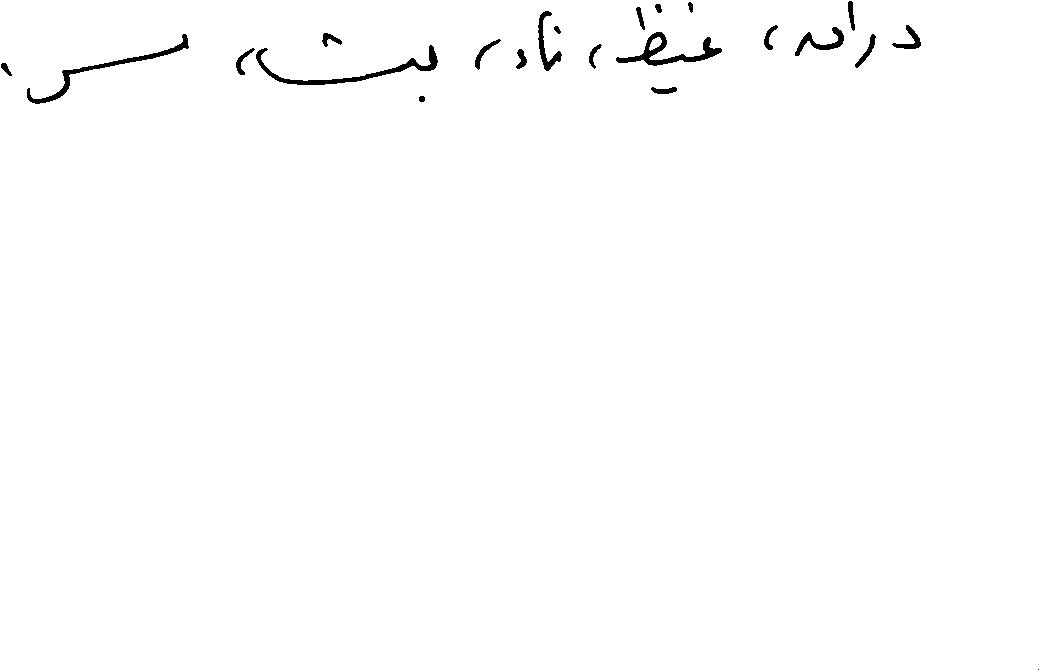 دراسه، غيظ، ناد، بث، س.